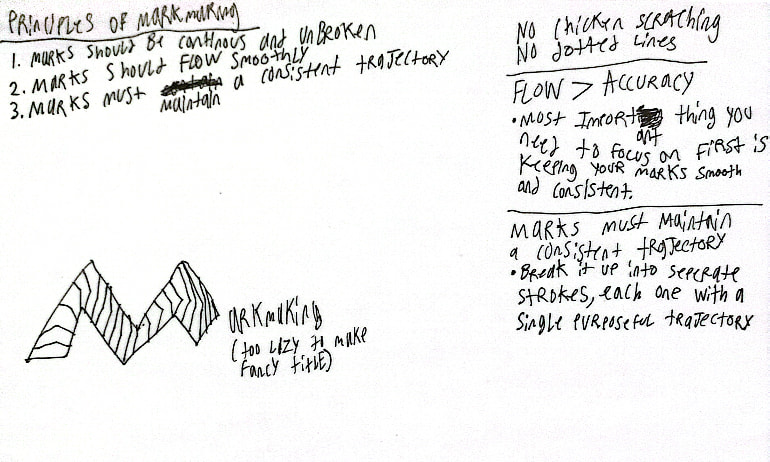 PRINCIPLES OF MARKMAKING
1. MARKS SHOULD BE CONTINOUS AND UNBROKEN
2. MARKS SHOULD FLOW SMOOTHLY
3. MARKS MUST MAINTAIN A CONSISTENT TRAJECTORY
NO CHICKEN SCRATCHING
NO DOTTED LINES
FLOW > ACCURACY
•MOST IMPORTANT THING YOU
NEED TO FOCUS ON FIRST IS
KEEPING YOUR MARKS SMOOTH
AND CONSISTENT.
MARKS MUST MAINTAIN
A CONSISTENT TRAJECTORY
•BREAK IT UP INTO SEPERATE
STROKES, EACH ONE WITH A
SINGLE PURPOSEFUL TRAJECTORY
MARKMAKING
(TOO LAZY TO MAKE
FANCY TITLE)